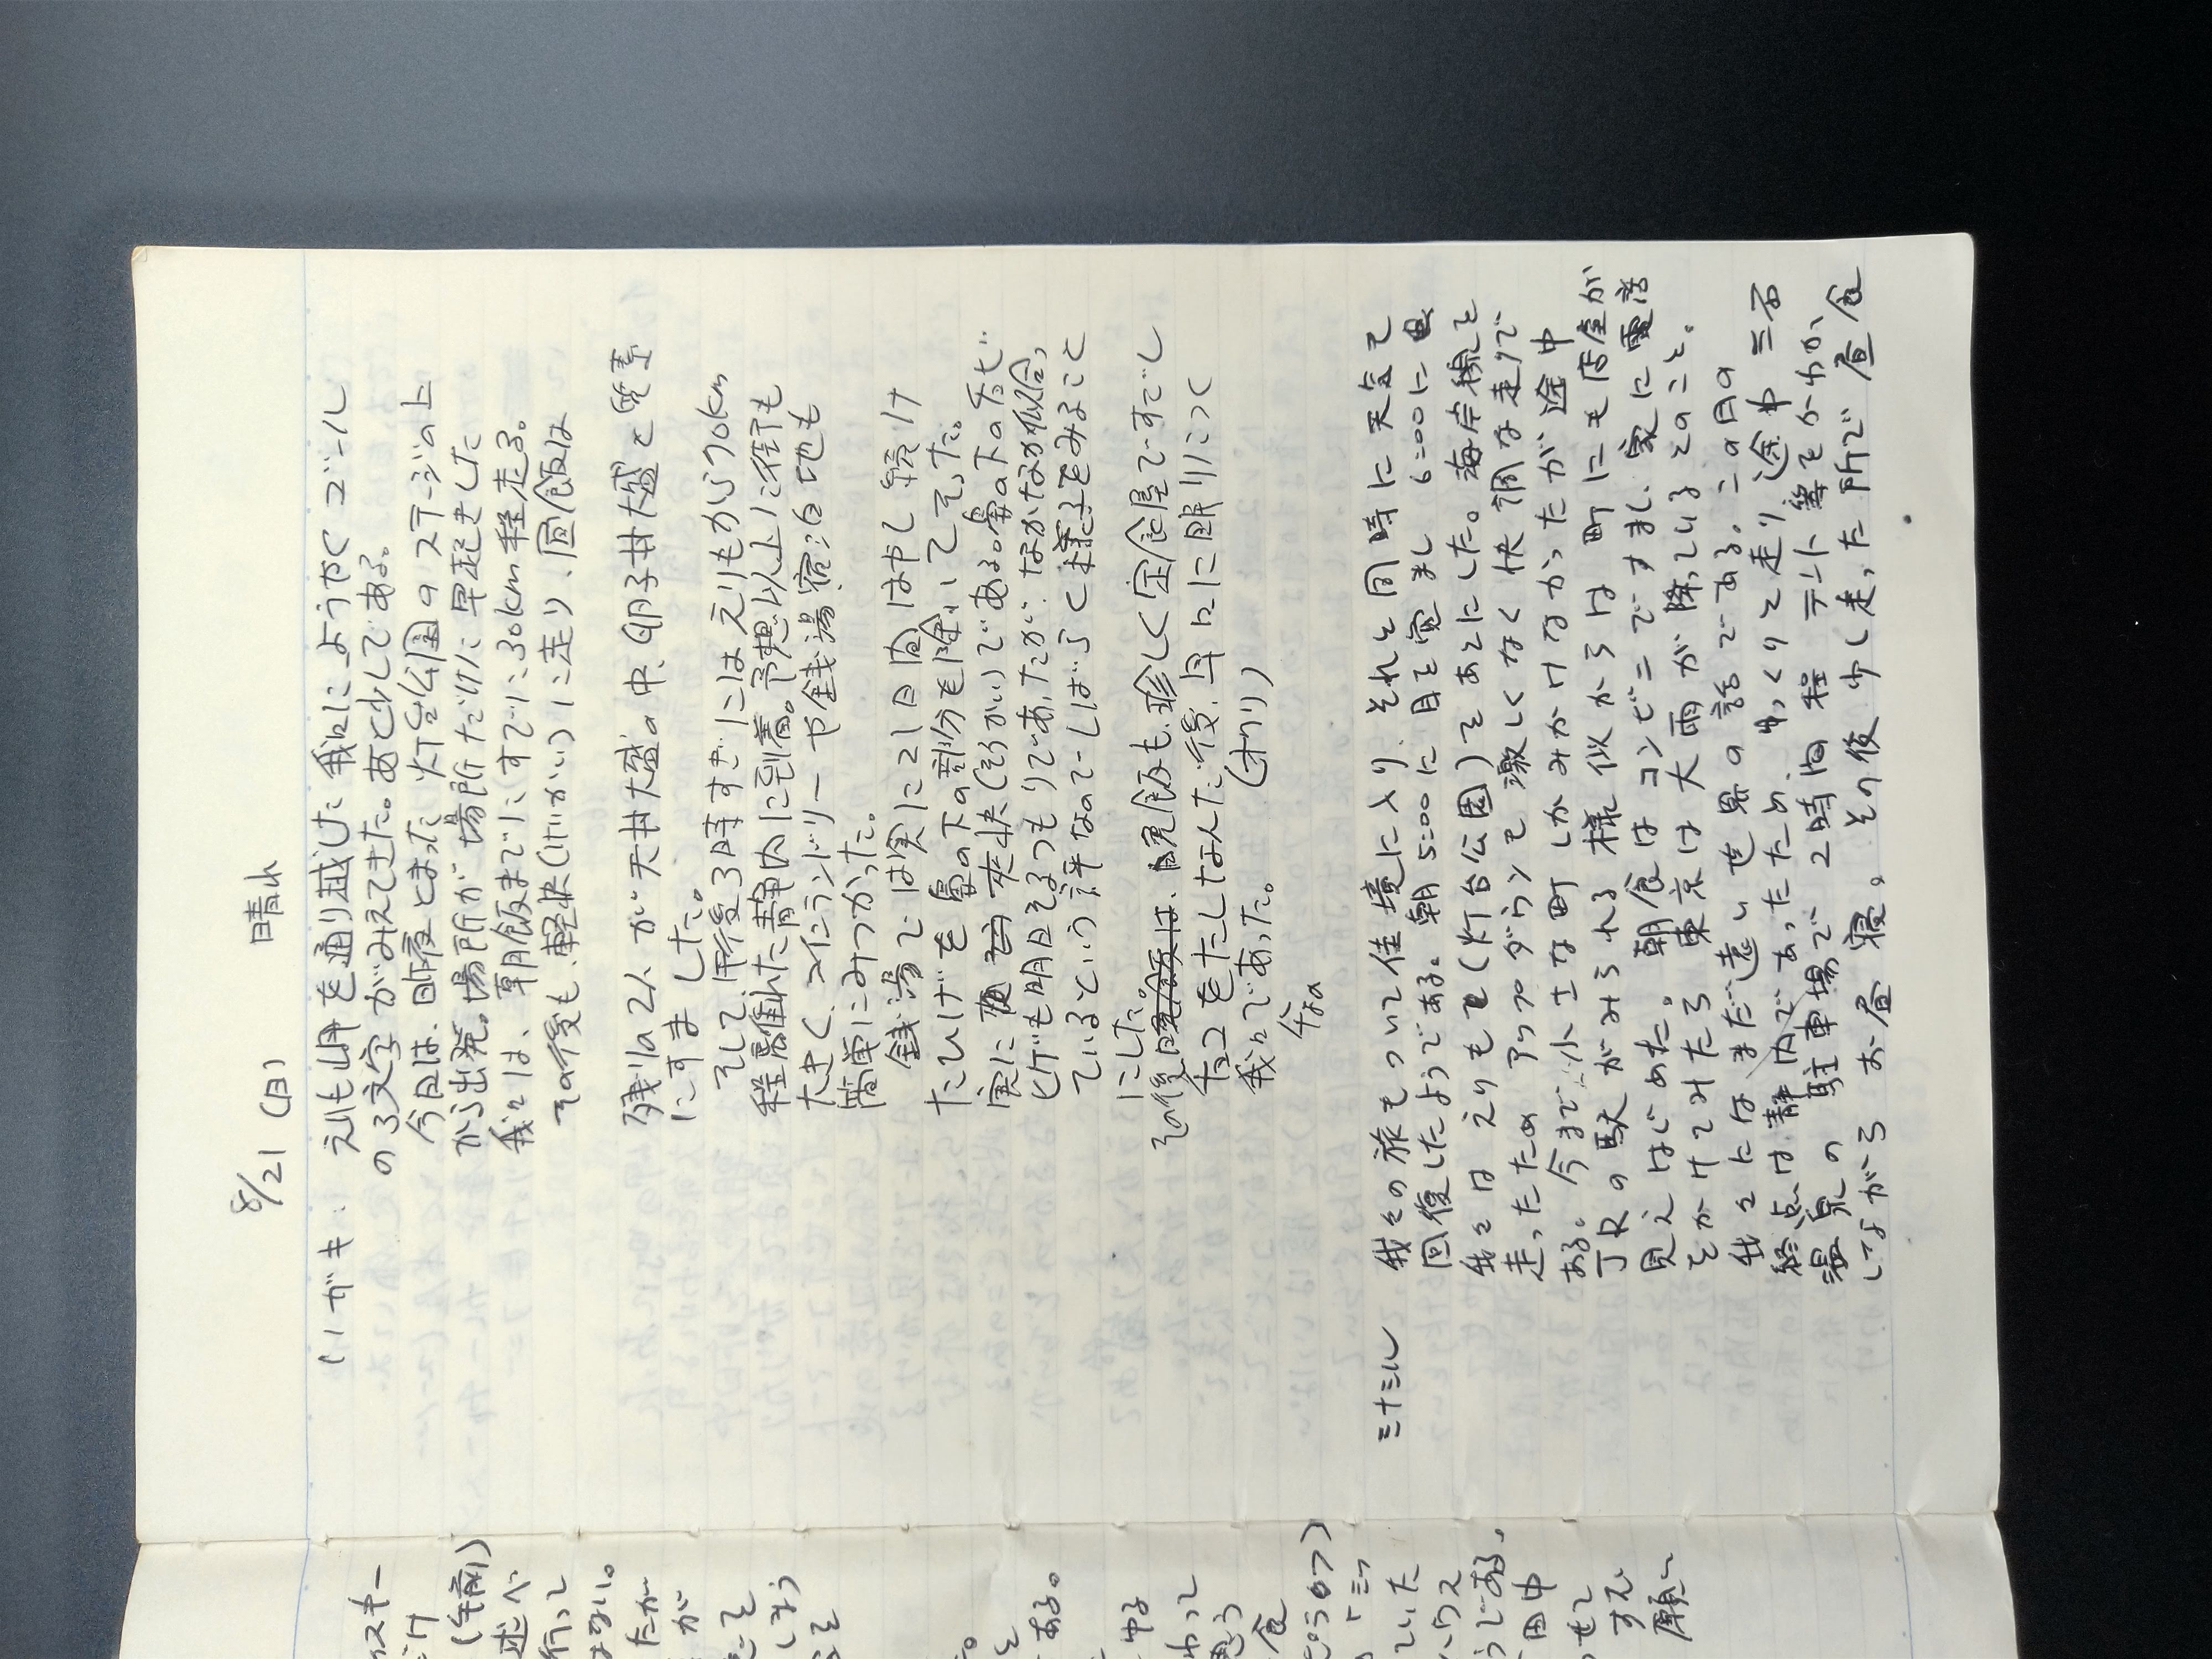 8/21(日) 晴れ
いガキ: えりも岬を通り越した我々にようやくゴール
の3文字がみえてきた。あと少しである。
今日は、昨夜とまった灯台公園のステージの上
から出発。場所が場所だけに早起きした
我々は、朝飯までにすでに30km程走る。
その後も、軽快(けいかい)に走り、昼飯は
残りの2人が天丼大盛の中、卵子丼大盛と質素
にすました。
そして、午後3時すぎにはえりもから70km
程離れた静内に到着。予想以上に街も
大きく、コインランドリーや銭湯、宿泊地も
簡単にみつかった。
銭湯では実に21日間はやし続け
たひげを鼻の下の部分を除いてそった。
実に爽快(そうかい)である。鼻の下のチビ
ヒゲも明日そるつもりであったが、なかなか似合っ
ているという評判なのでしばらく様子をみること
にした。
その後、晩飯も、珍しく定食屋ですごし
チューをたしなんだ後、早々に眠りにつく
我々であった。 (オワリ)
ミナミル 我々の旅もついて佳境に入り、それと同時に天気も
回復したようである。朝5:00に目を覚まし6:00に
我々はえりもを(灯台公園)をあとにした。海岸線を
走ったためアップダウンも激しくなく快調な走りで
ある。今まで小さな町しかみかけなかったが途中
JRの駅がみられる様似からは町にも店屋が
見えはじめた。朝食はコンビニですまし、家に電話
をかけてみたら東京は大雨が降っているとのこと。
我々にはまだ遠い世界の話である。この日の
終点は静内であったため、ゆっくりと走り途中三石
温泉の駐車場で2時間程テント等をかわか
しながらお昼寝。その後少し走った所で昼食
スキー
(午前)
述べ
行って
はない。
たが
が
ある。
ゆる
わって
思う
食
ていた
ハウス
うである。
田中
せて
願い